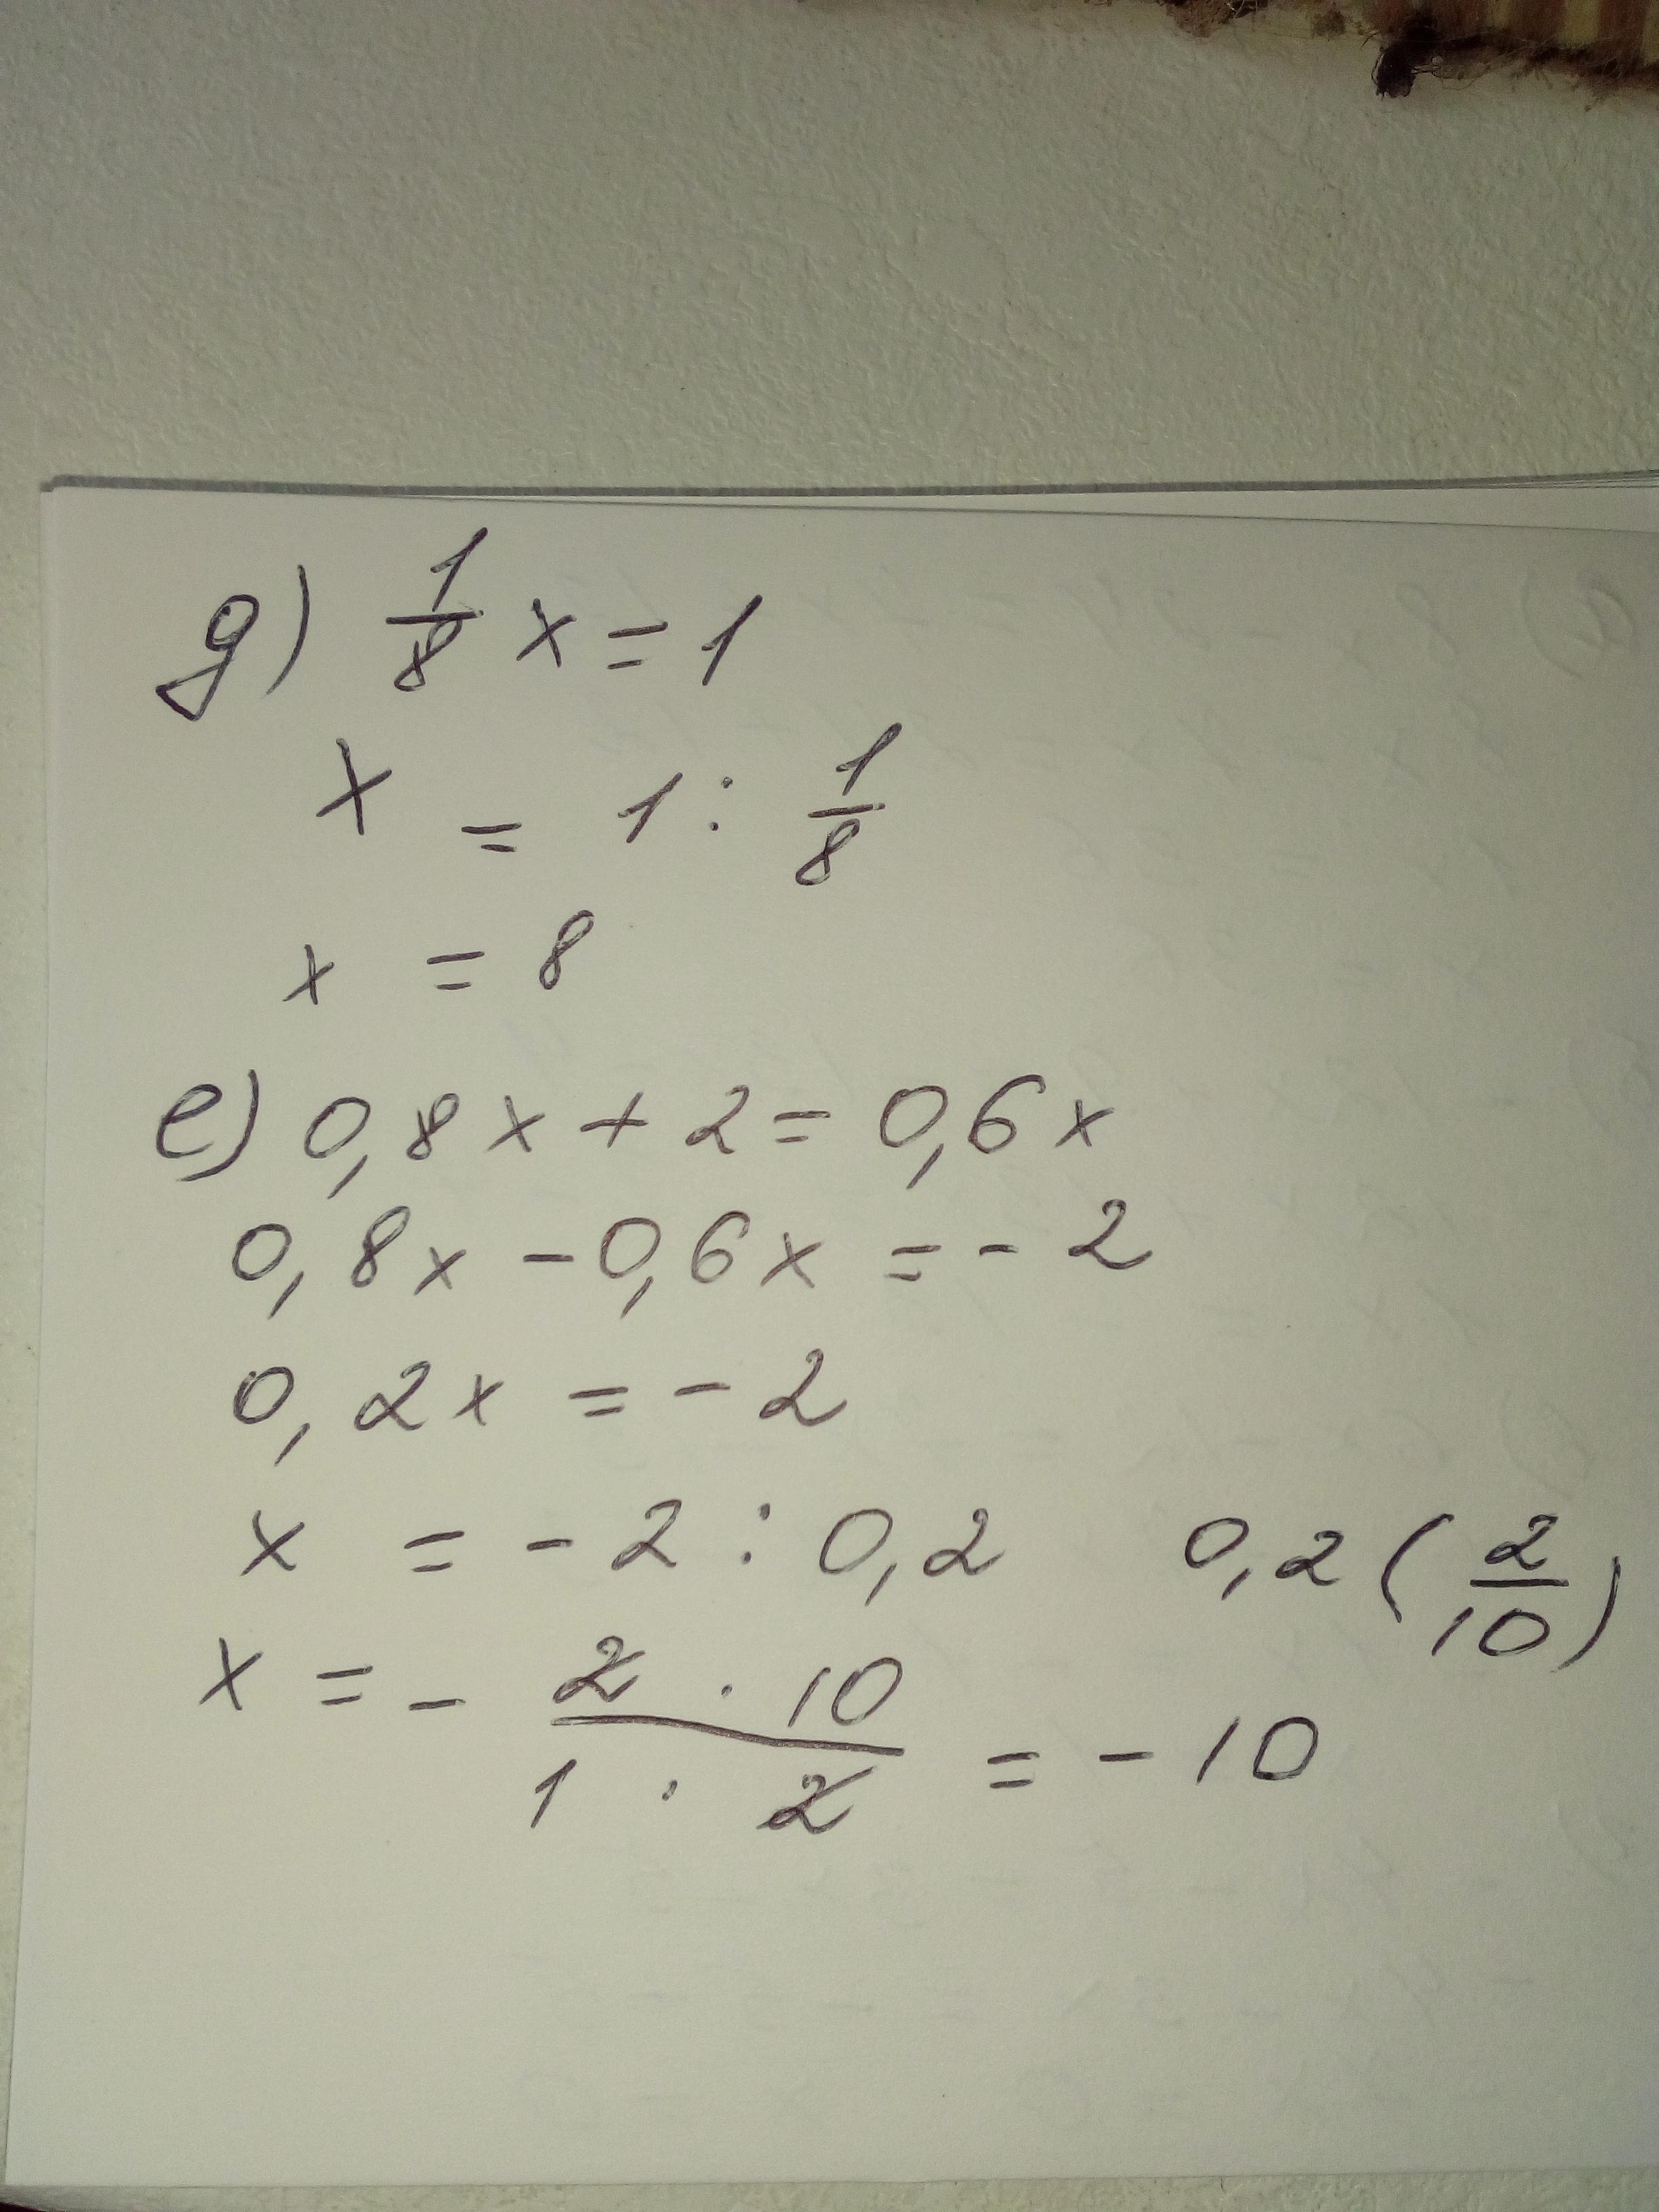 д) 1/8 x = 1
x = 1 : 1/8
x = 8
е) 0,8x + 2 = 0,6x
0,8x - 0,6x = - 2
0,2x = - 2
x = - 2 : 0,2 0,2 (2/10)
x = - 2 · 10 / 1 · 2 = - 10